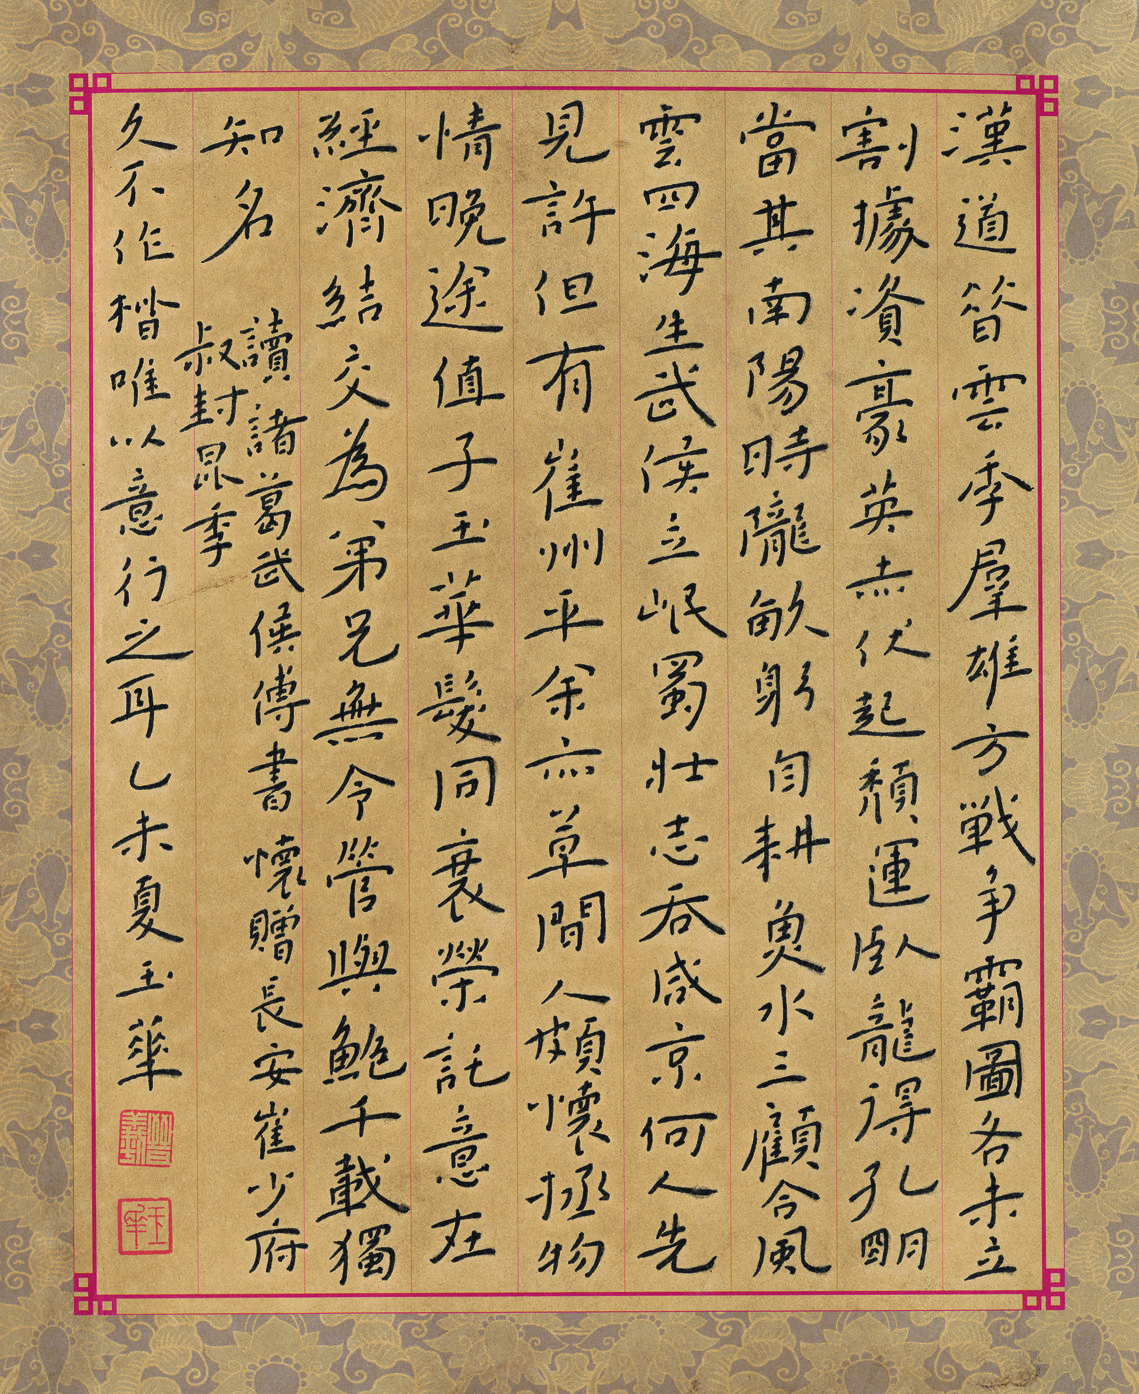 漢道㫺雲季羣雄方戦争霸圖各未立
割據資豪英赤伏起頹運卧龍得孔朙
當其南陽時隴畝躬自耕魚水三顧合風
雲四海生武侯立岷蜀壯志吞咸京何人先
見許但有崔州平余亦草間人頗懷拯物
情晚途值子玉華髮同衰榮託意在
經濟結交為弟兄無令管與鮑千載獨
知名
讀諸葛武侯傳書懷贈長安崔少府
叔封昆季
久不作楷唯以意行之耳乙未夏玉華